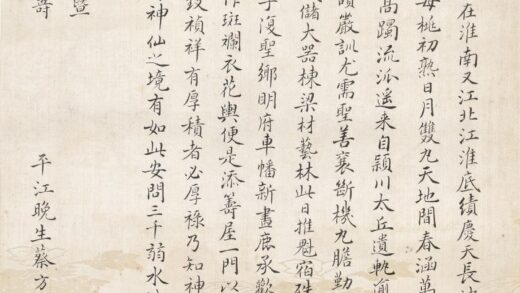 在淮南又江北江淮底績慶天長
母桃初熟日月雙丸天地間春涵萬
高躅流派遙来自潁川太丘遺軌
嚴訓尤需聖善襄斷機丸膽勤
儲大器棟梁材藝林此日推魁宿珠
復聖鄉明府車幡新畫鹿承歡
作斑斕衣花輿便是添籌屋一門以
致禎祥有厚積者必厚祿乃知神
神仙之境有如此安問三千弱水
暨
平江晚生蔡方